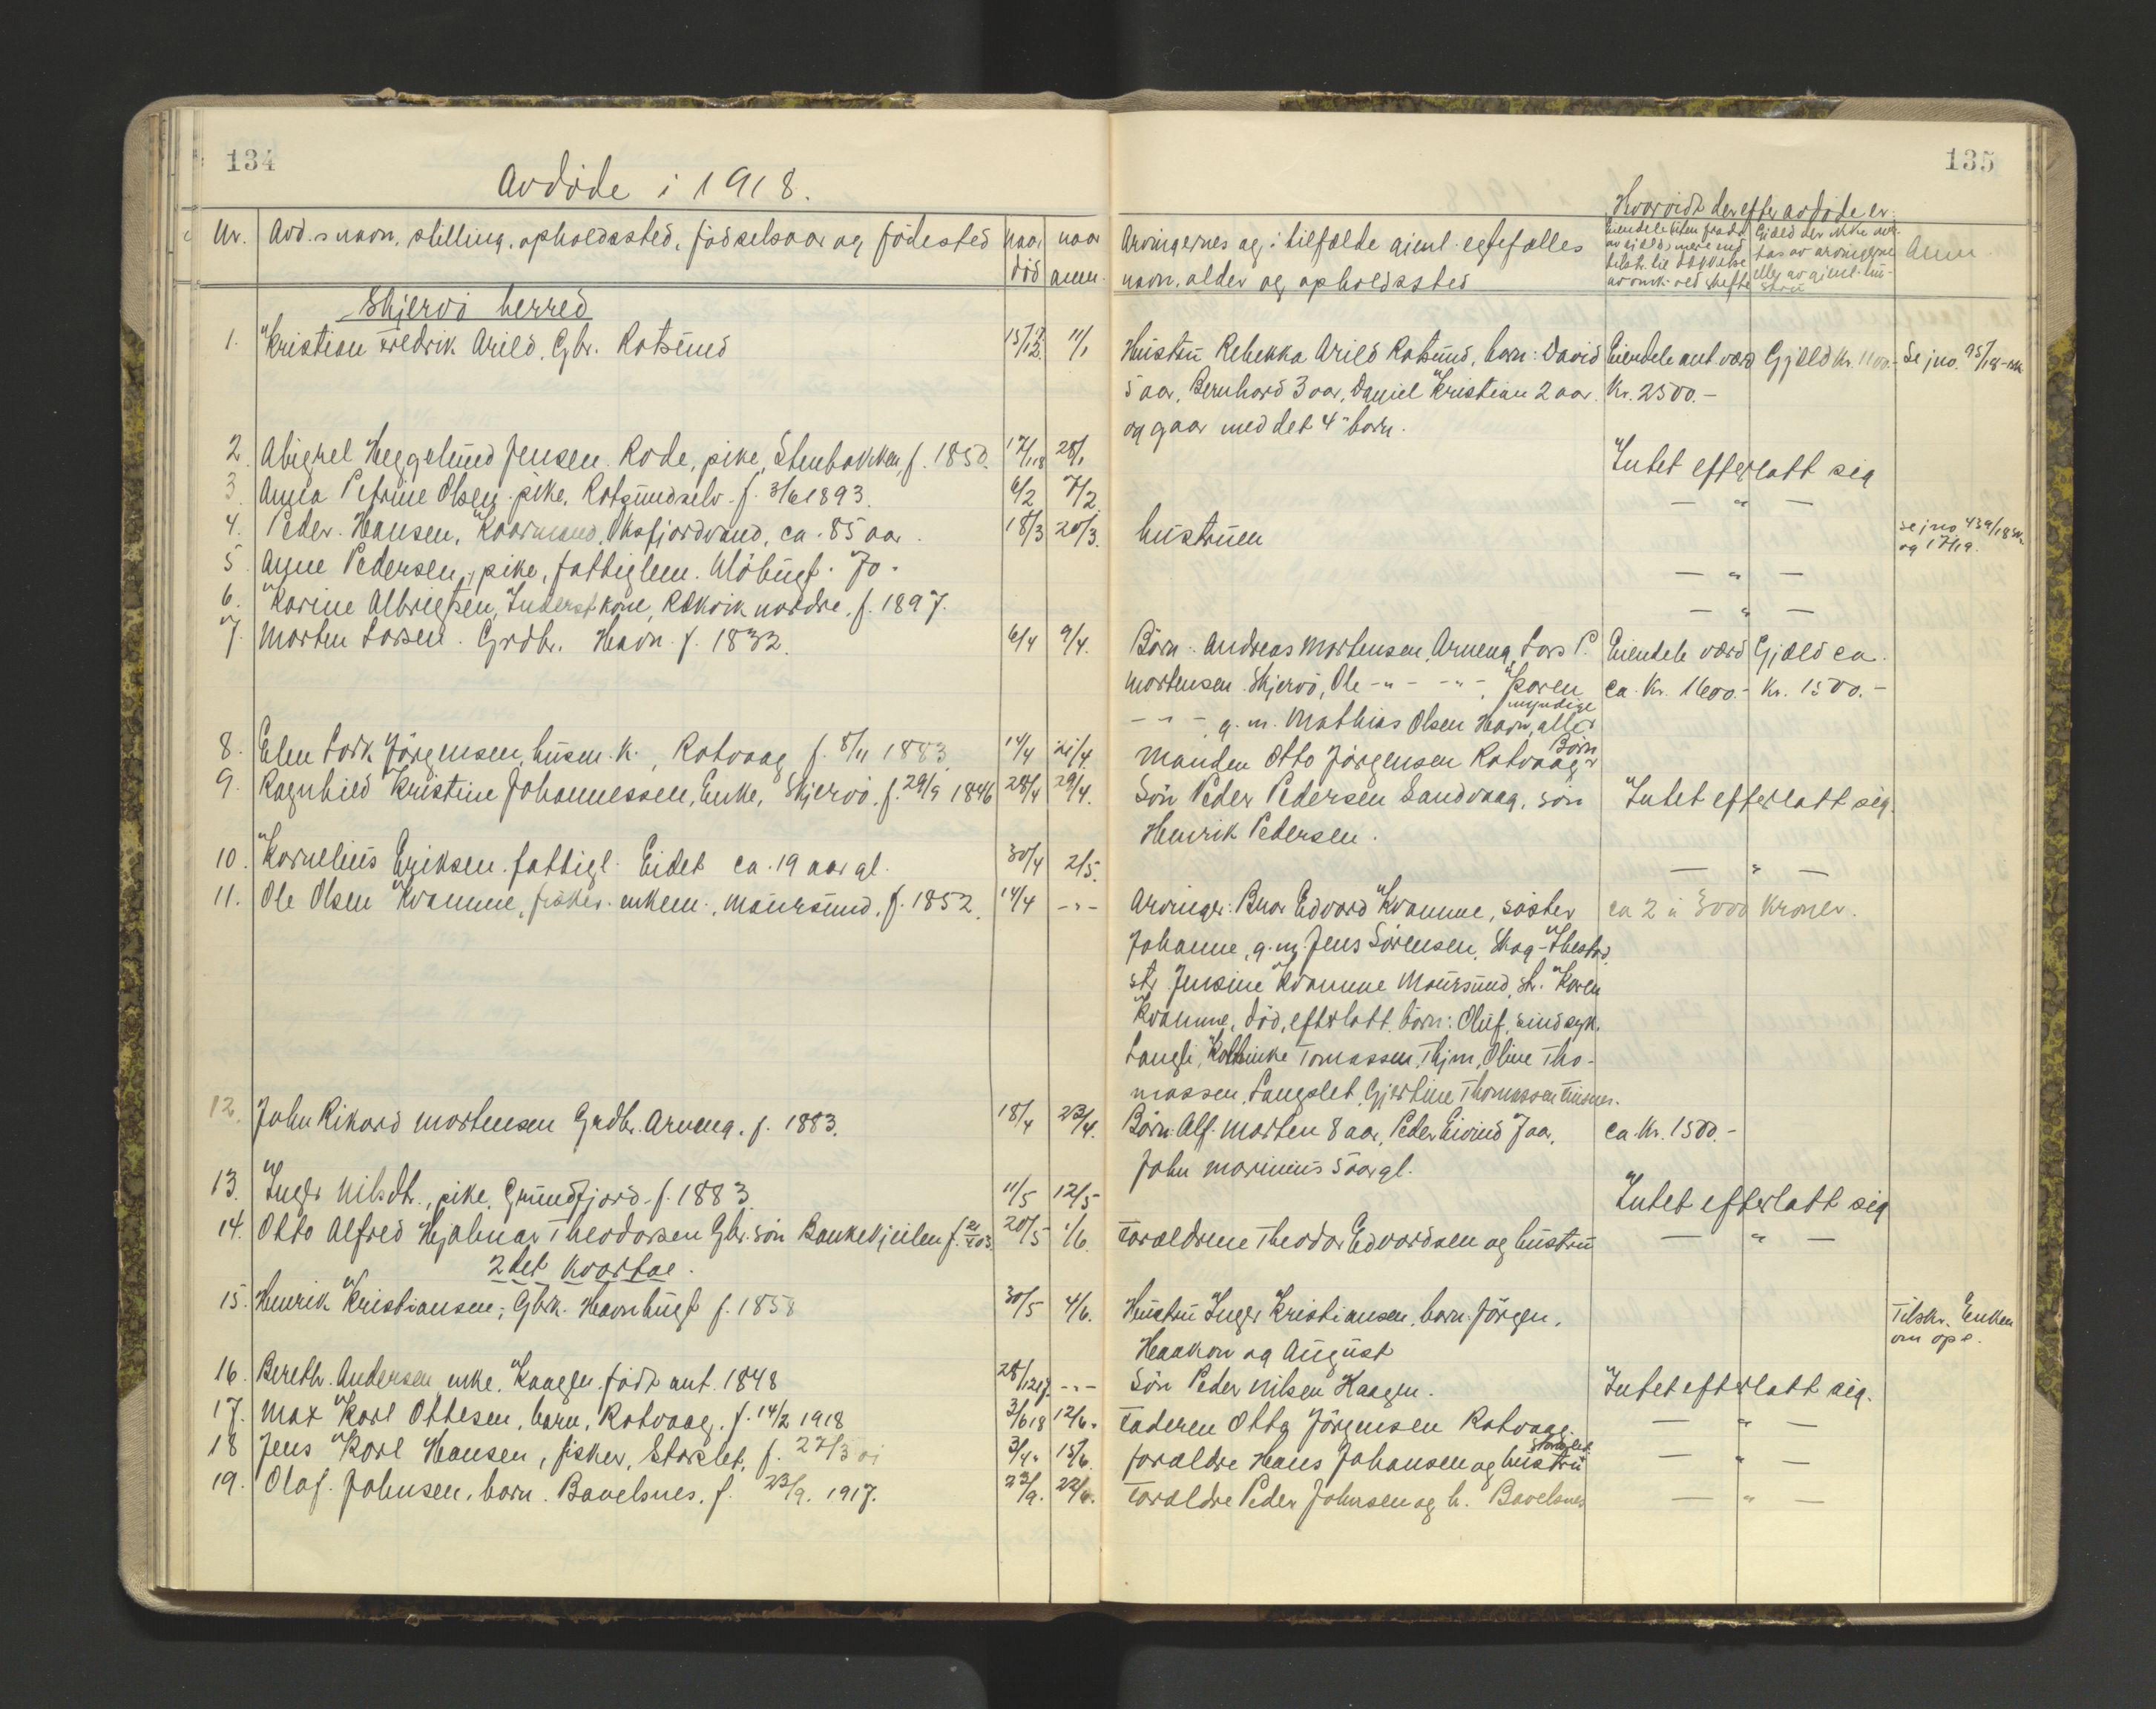 134
Avdöde i 1918.
Nr. Avd.s navn, stilling, opholdssted, födselsaar og födested naar död naar anm.
Skjervö herred
1. Kristian Fredrik Arild, Gbr. Rotsund 15/12 11/1
2. Abigael Heggelund Jensen Rode, pike, Stenbakken, f. 1850. 17/1 18 28/1
3. Anna Petrine Olsen, pike, Rotsundselv f. 3/6 1893. 6/2 7/2
4. Peder Hansen, Kaarmand, Oksfjordvand, ca. 85 aar. 18/3 20/3.
5. Anne Pedersen, pike, fattiglem. Ulöbugt. 70.
6. Karine Albrigtsen, Inderst kone, Rakvik nordre, f. 1897.
7. Morten Larsen. Grdbr. Havn f. 1832. 6/4 9/4.
8. Elen Lock Jörgensen, husm. k., Rotvaag f. 8/11 1883. 14/4 21/4.
9. Ragnhild Kristine Johannessen, Enke, Skjervö f. 29/9 1846 28/4 29/4.
10. Kornelius Eriksen fattigl. Eidet ca. 19 aar gl. 30/4 2/5.
11. Ole Olsen Kvamme, fisker. enkem., Maursund, f. 1852. 14/4 -"-
12. John Rikard Mortensen Grdbr. Arneng. f. 1883. 18/4 23/4.
13. Inger Nilsdtr., pike, Grundfjord f. 1883 11/5 12/5
14. Otto Alfred Hjalmar Theodorsen Gbr. sön Bankekjeilen f. 03 20/5 1/6.
2det kvartal.
15. Henrik Kristiansen, Gbr. Havnbugt f. 1858 30/5 4/6.
16. Bereth Andersen enke, Kaagen, födt ant. 1848 28/12 17 -"-
17. Max Karl Ottesen, barn, Rotvaag, f. 14/2 1918 3/6 18 12/6.
18 Jens Karl Hansen, fisker, Storslet, f. 27/3 01 3/4. 15/6.
19. Olaf Johnsen, barn. Bavelsnes, f. 23/9. 1917. 23/9. 22/6.
135
Hvorvidt der efter avdöde er:
Arvingernes og i tilfælde gjenl. egtefælles navn, alder og opholdssted
Anm.
Hustru Rebekka Arild Rotsund, barn: David Eiendele ant. værd Gjæld kr. 1100.- Se jno. 95/18
5 aar, Bernhard 3 aar, Daniel Kristian 2 aar. Kr. 2500.-
og gaar med det 4- barn.
Intet efterlatt sig
— " —
hustruen se jno 439/18
og 17/19.
— " —
— " —
Börn: Andreas Mortensen, Arneng, Lars P. Eiendele værd Gjæld ca.
Mortensen Skjervö, Ole -"- -"-, Karen ca. Kr. 1600.- Kr. 1500.-
-"- g.m. Mathias Olsen Havn, alle myndige
Manden Otto Jörgensen Rotvaag Börn
Sön Peder Pedersen Sandvaag, sön Intet efterlatt sig.
Henrik Pedersen.
— " —
Arvinger: Bror Edvard Kvamme, söster ca 2 à 3000 kroner.
Johanne, g.m. Jens Sörensen,
str. Jensine Kvamme Maursund, str. Karen
Kvamme, död, efterlatt börn: Oluf, sindssyk,
Langli, Tomassen, Thjm, Oline Tho-
massen, Langslet, Gjertine Thomassen
Börn: Alf Morten 8 aar, Peder Eivind 7 aar, ca. Kr. 1500.-
John Marinius 5 aar gl.
Intet efterlatt sig
Forældrene Theodor Edvardsen og hustru — " —
Hustru Inger Kristiansen, barn: Jörgen, Tilskr. Enken
Haakon og August om opl.
Sön Peder Nilsen Kaagen. Intet efterlatt sig.
Faderen Otto Jörgensen Rotvaag. — " —
forældre Hans Johansen og hustru Storslet. — " —
Forældre Peder Johnsen og h. Bavelsnes — " —